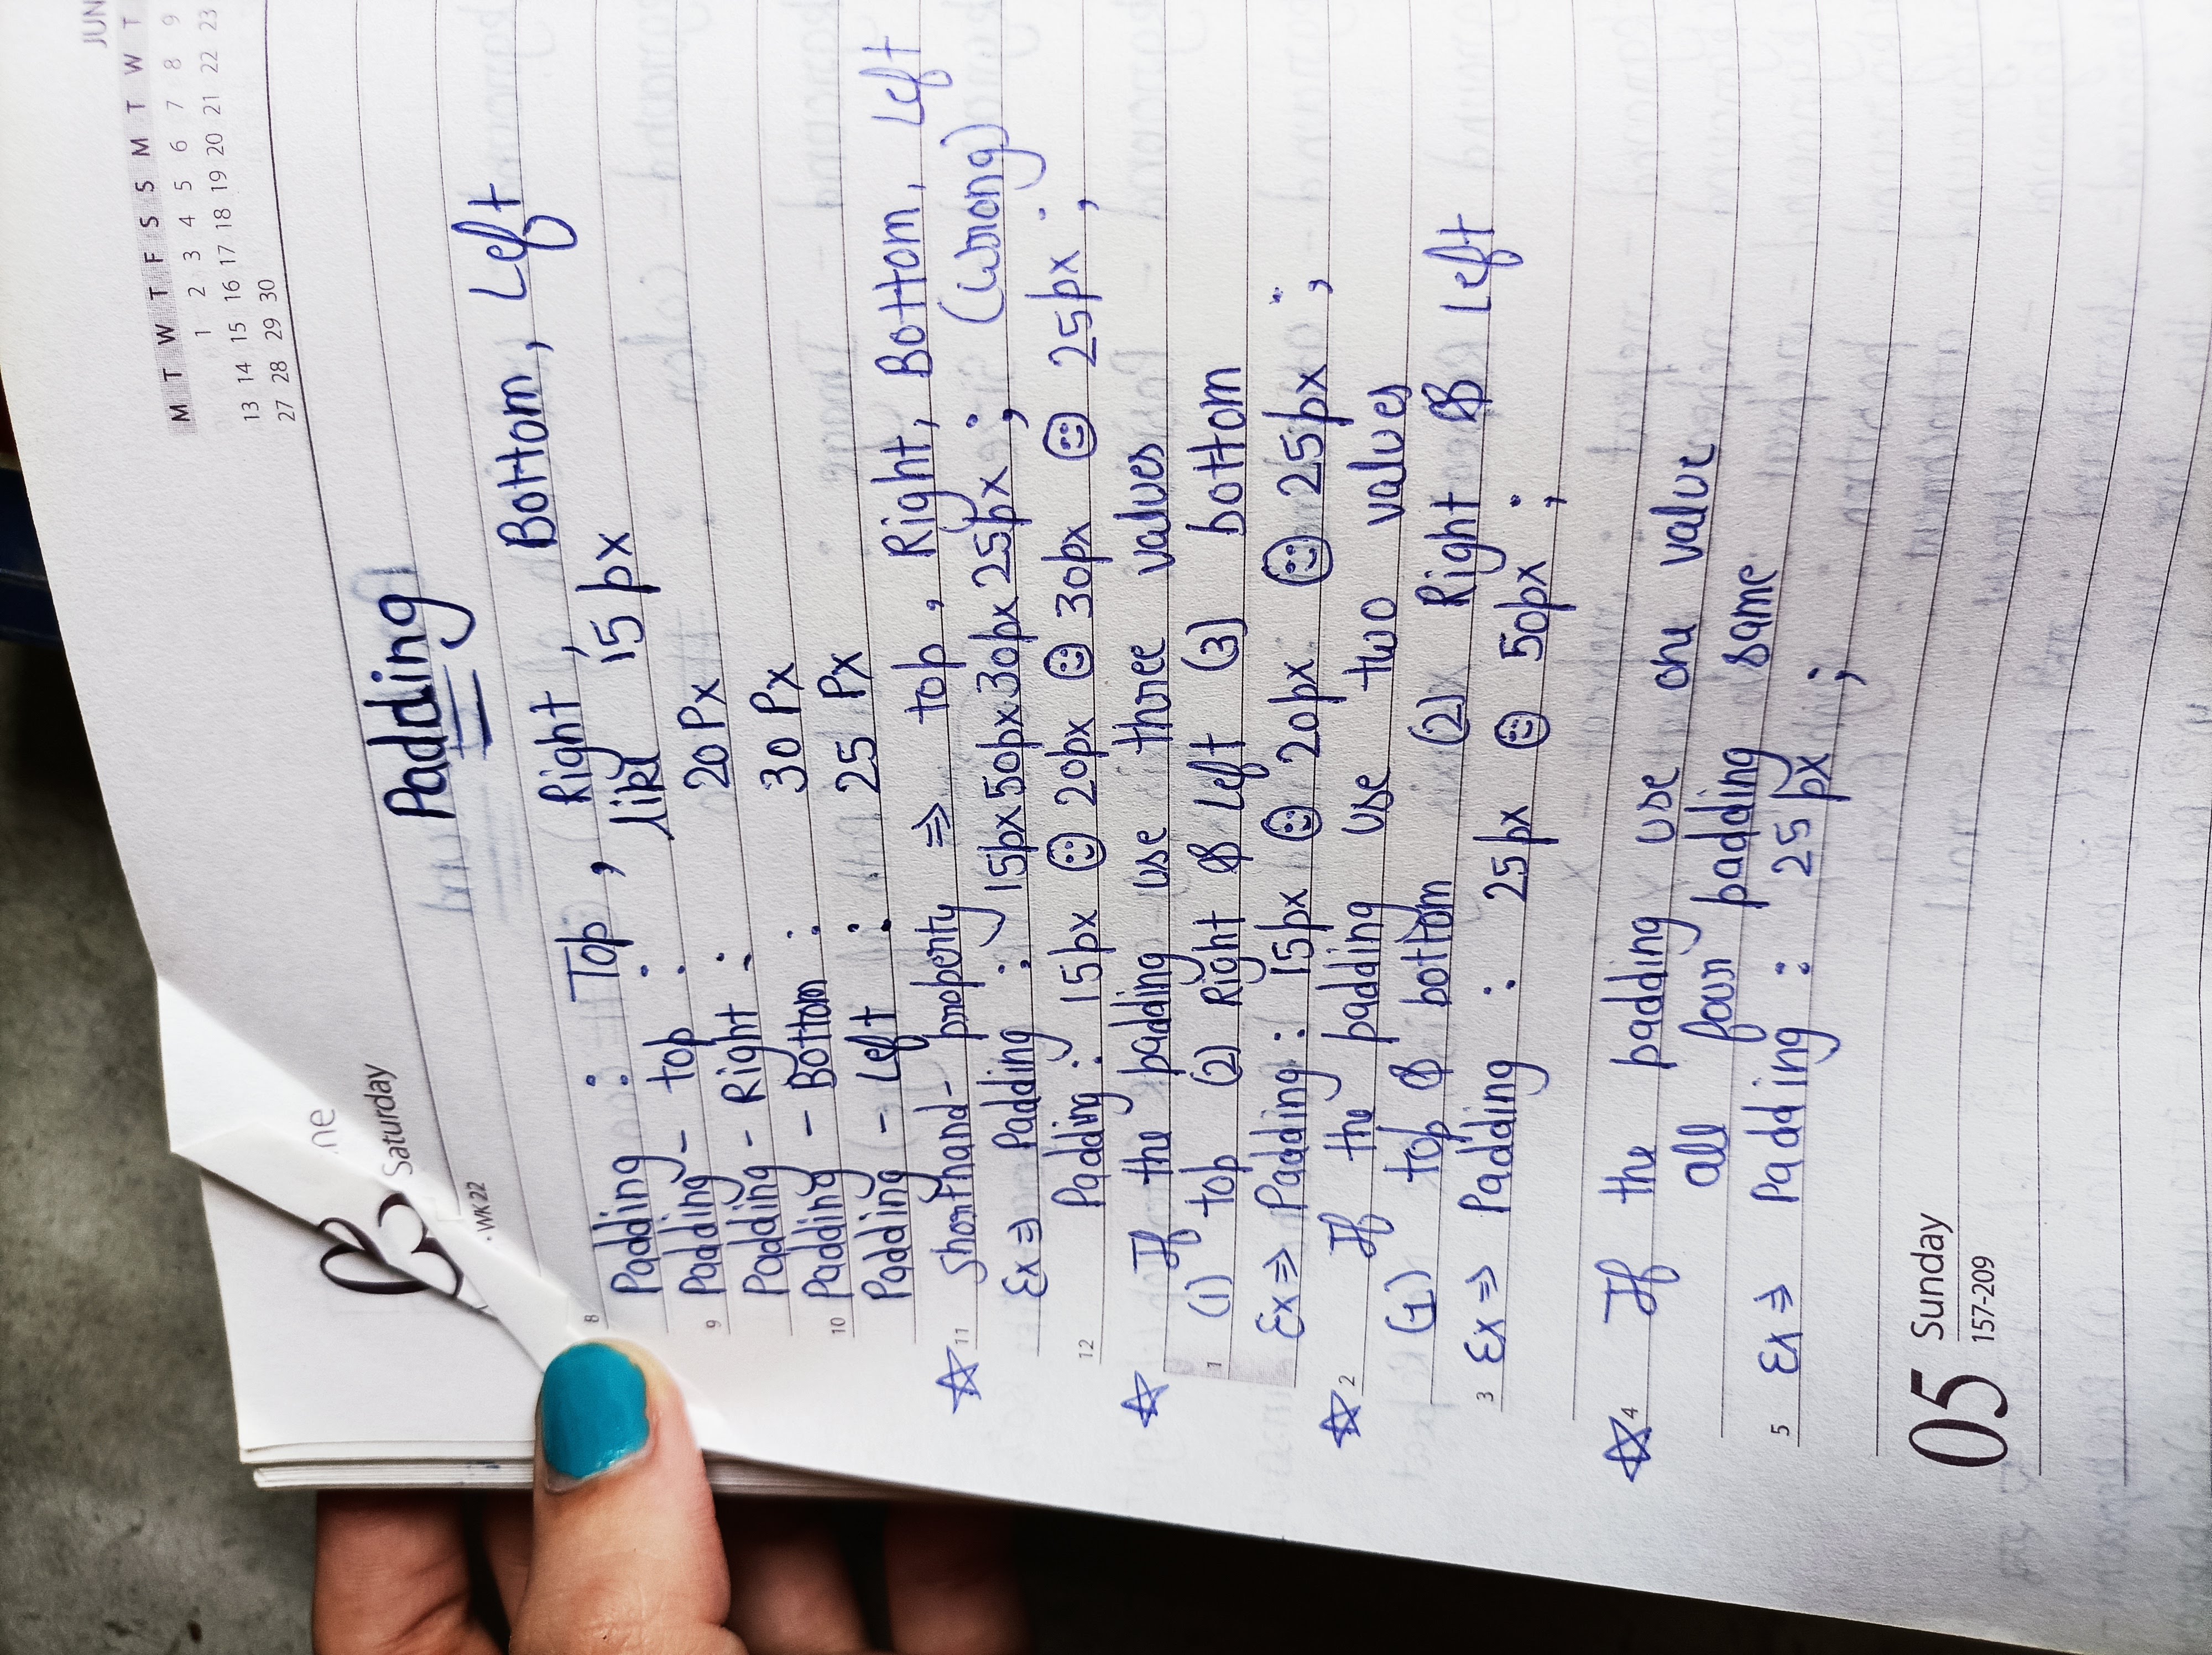 JUN
M T W T F S S M T W T
1 2 3 4 5 6 7 8 9
13 14 15 16 17 18 19 20 21 22 23
27 28 29 30
Saturday
WK 22
Padding
8
Padding : Top , Right , Bottom, Left
Padding - top : like 15px
9
Padding - Right : 20 Px
Padding - Bottom : 30 Px
10
Padding - Left : 25 Px
☆ 11 Shorthand- property ⇒ top , Right, Bottom, Left
Ex ⇒ Padding : 15px50px30px25px ; (Wrong)
12 Padding : 15px ☺ 20px ☺ 30px ☺ 25px ;
☆ If the padding use three values
1 (1) top (2) Right & Left (3) bottom
Ex ⇒ Padding : 15px ☺ 20px ☺ 25px ;
☆ 2 If the padding use two values
(1) top & bottom (2) Right & Left
3 Ex ⇒ Padding : 25px ☺ 50px ;
☆ 4 If the padding use one value
all four padding same
5 Ex ⇒ Padding : 25px ;
05 Sunday
157-209